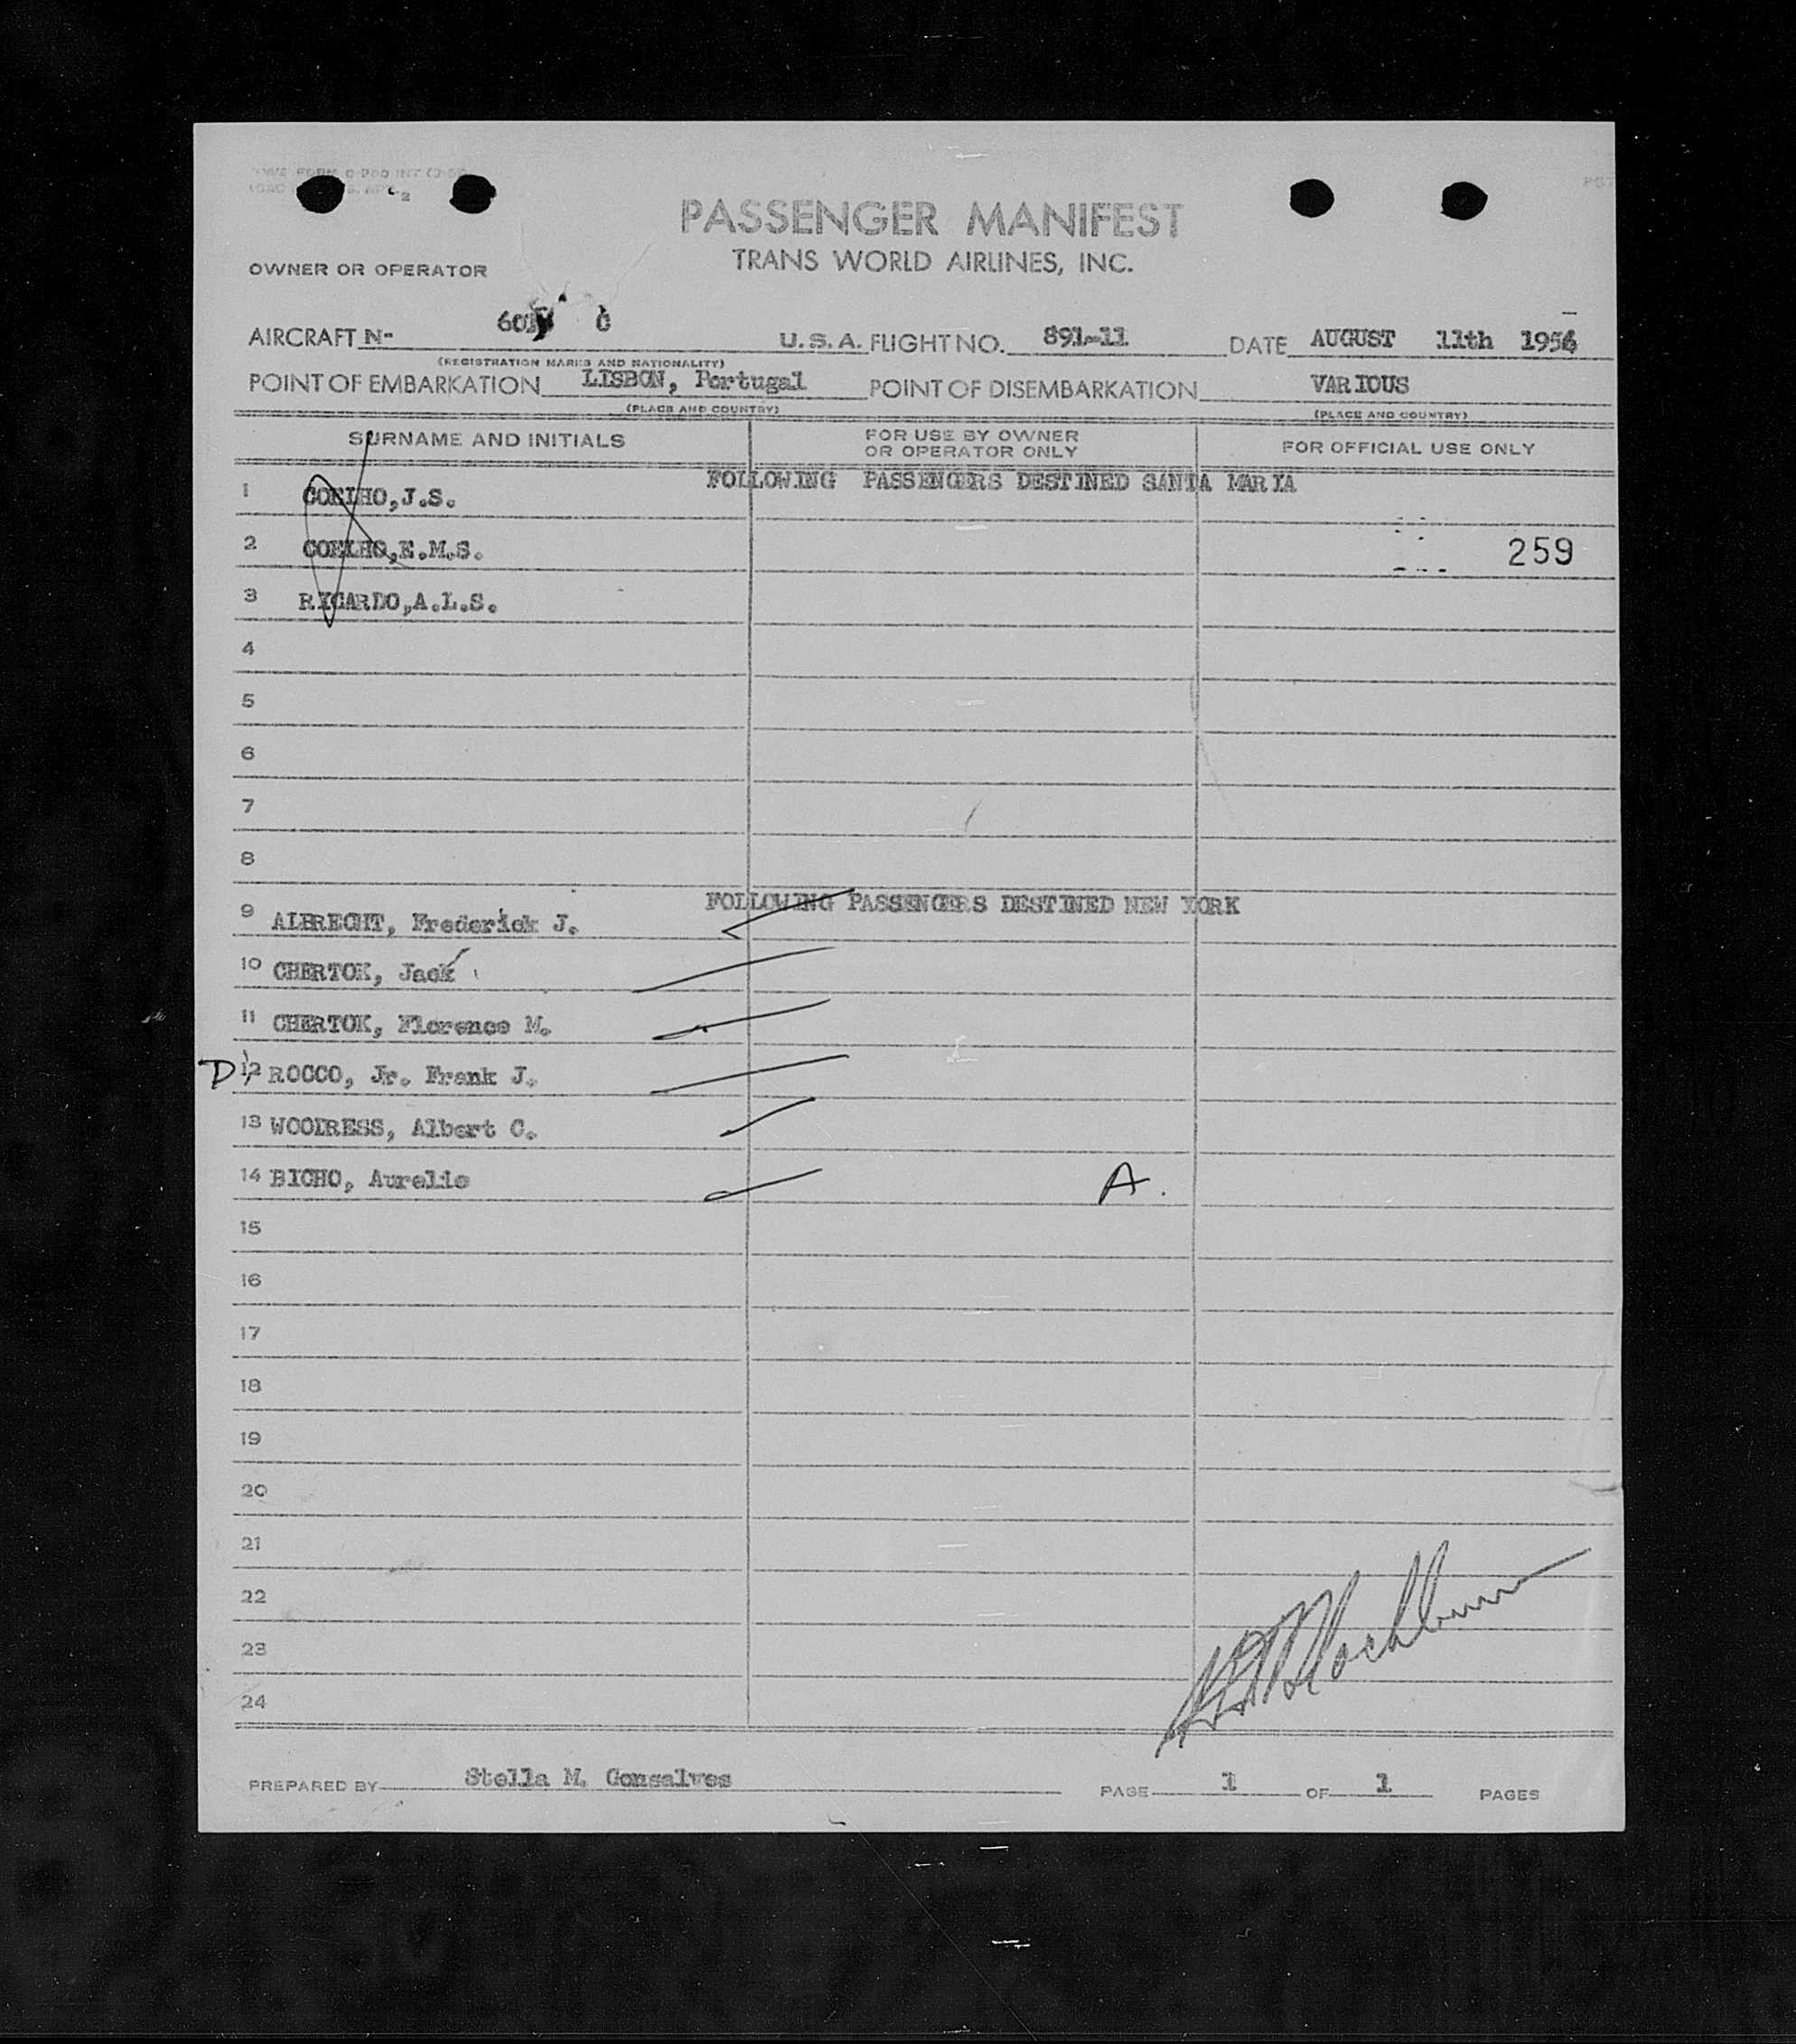 PASSENGER MANIFEST
TRANS WORLD AIRLINES, INC.
OWNER OR OPERATOR
AIRCRAFT N- C U.S.A. FLIGHT NO. 891-11 DATE AUGUST 11th 1954
(REGISTRATION MARKS AND NATIONALITY)
POINT OF EMBARKATION LISBON, Portugal POINT OF DISEMBARKATION VARIOUS
(PLACE AND COUNTRY) (PLACE AND COUNTRY)
SURNAME AND INITIALS FOR USE BY OWNER OR OPERATOR ONLY FOR OFFICIAL USE ONLY
FOLLOWING PASSENGERS DESTINED SANTA MARIA
1 COELHO,J.S.
2 COELHO,E.M.S. 259
3 RICARDO,A.L.S.
4
5
6
7
8
FOLLOWING PASSENGERS DESTINED NEW YORK
9 ALBRECHT, Frederick J.
10 CHERTOK, Jack
11 CHERTOK, Florence M.
D 12 ROCCO, Jr. Frank J.
13 WOODRESS, Albert C.
14 BICHO, Aurelio A.
15
16
17
18
19
20
21
22
23
24
PREPARED BY Stella M. Gonsalves PAGE 1 OF 1 PAGES